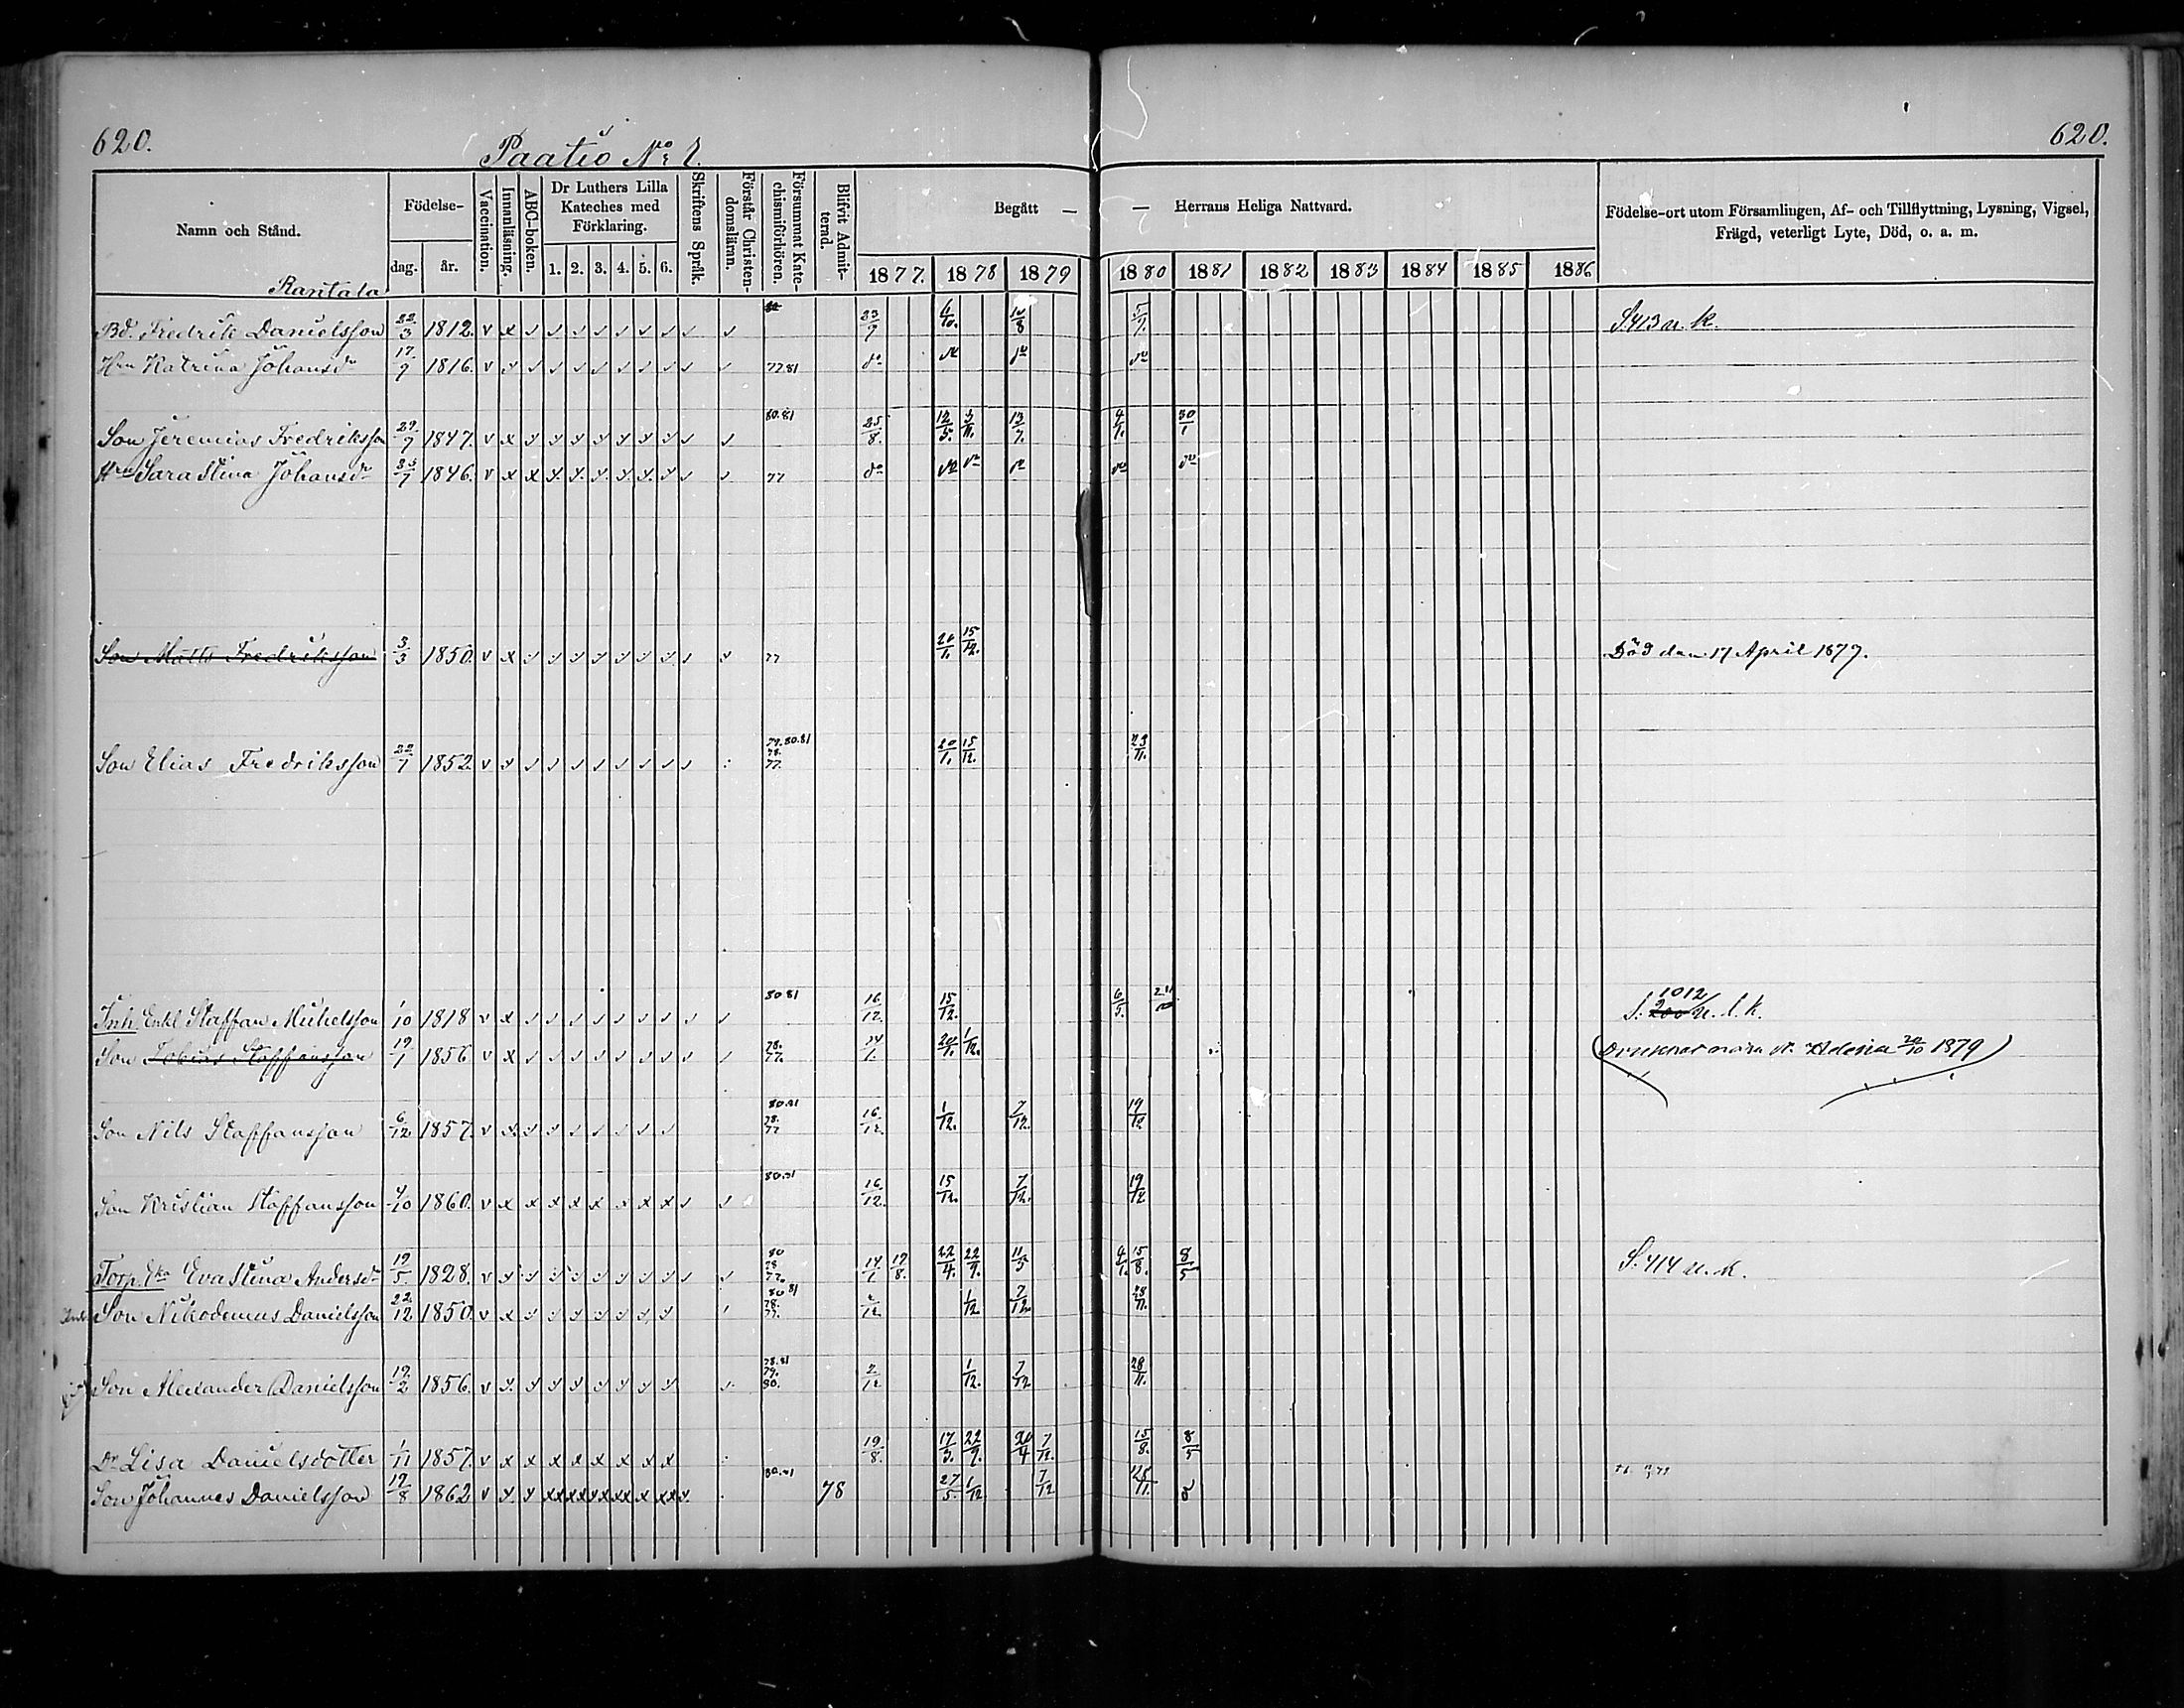 620. 620.
Paatio No 2.
Namn och Stånd. Födelse- dag. år. Vaccination. Innanläsning. ABC-boken. Dr Luthers Lilla Kateches med Förklaring. 1. 2. 3. 4. 5. 6. Skriftens Språk. Förstår Christendomsläran. Försummat Katechismiförhören. Blifvit Admitterad. Begått — — Herrans Heliga Nattvard. 1877. 1878 1879 1880 1881 1882 1883 1884 1885 1886 Födelse-ort utom Församlingen, Af- och Tillflyttning, Lysning, Vigsel, Frägd, veterligt Lyte, Död, o. a. m.
Rantala
Bd. Fredrik Danielsson 22/3 1812. v x 23/9 6/10. 10/8 5/9. S. 413 u. k.
Hru Katrina Johansdr 17/9 1816. v 77 81 do do do do
Son Jeremias Fredriksson 29/7 1847. v x 80.81 25/8. 12/5. 3/11. 13/7. 4/1. 30/1
Hru Sara Stina Johansdr 1846. v x x 77 do do do do do do
Son Matts Fredriksson 3/3 1850. v x 77 20/1. 15/12. Död den 17 April 1877.
Son Elias Fredriksson 22/7 1852. v 79.80.81 78. 77. 20/1. 15/12. 23/11.
Inh. Enkl Staffan Michelsson 1/10 1818 v x 80 81 16/12. 15/12. 6/5. S. 1012 200 u. l. k.
Son Tobias Staffansson 19/1 1856 v x 78. 77. 14/1. 20/1. 1/12. 20/10 1879
Son Nils Staffansson 6/12 1857. v x 78. 77 16/12. 1/12. 7/12. 19/12
Son Kristian Staffansson 4/10 1860. v x x x x x x x x 16/12. 15/12. 7/12. 19/12
Torp. Eka Eva Stina Andersdr 19/5. 1828. v 80 78 77. 14/1 19/8. 22/4. 22/9. 11/5 4/1. 15/8. 8/5 S. 414 u. k.
Son Nikodemus Danielsson 22/12 1850. v x 80 81 78. 77. 2/12 1/12 7/12. 28/11.
Son Alexander Danielsson 19/2 1856. v 78.81 79. 80. 2/12 1/12. 7/12 28/11.
Dr Lisa Danielsdotter 1/11 1857. v x x x x x x x x 19/8. 17/3. 22/9. 20/4 7/12. 15/8. 8/5
Son Johannes Danielsson 19/8 1862 v 78 27/5. 1/12 7/12